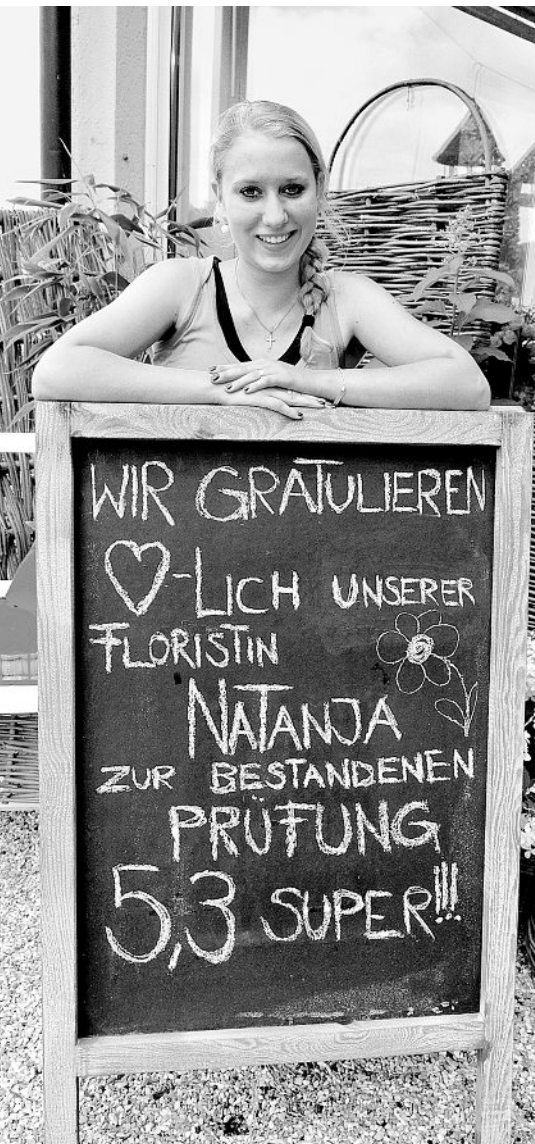 WIR GRATULIEREN
♡-LICH UNSERER
FLORISTIN
NATANJA
ZUR BESTANDENEN
PRÜFUNG
5,3 SUPER!!!